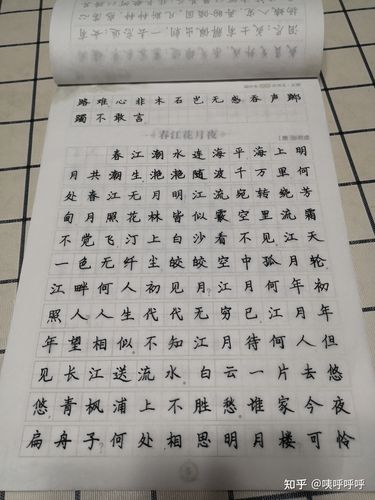 路难心非木石岂无感吞声踯
躅不敢言
春江花月夜
春江潮水连海平海上明
月共潮生滟滟随波千万里何
处春江无月明江流宛转绕芳
甸月照花林皆似霰空里流霜
不觉飞汀上白沙看不见江天
一色无纤尘皎皎空中孤月轮
江畔何人初见月江月何年初
照人人生代代无穷已江月年
年望相似不知江月待何人但
见长江送流水。白云一片去悠
悠。青枫浦上不胜愁谁家今夜
扁舟子何处相思明月楼可怜
知乎 @咦呼呼呼